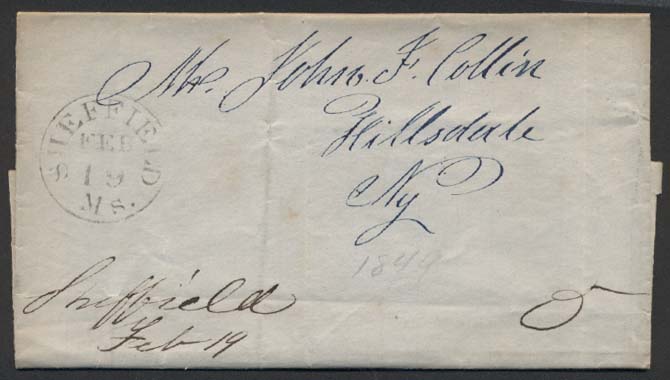 Mr. John. F. Collin
Hillsdale
Ny
SHEFFIELD
FEB
19
MS.
1849
Sheffield
Feb 19
5